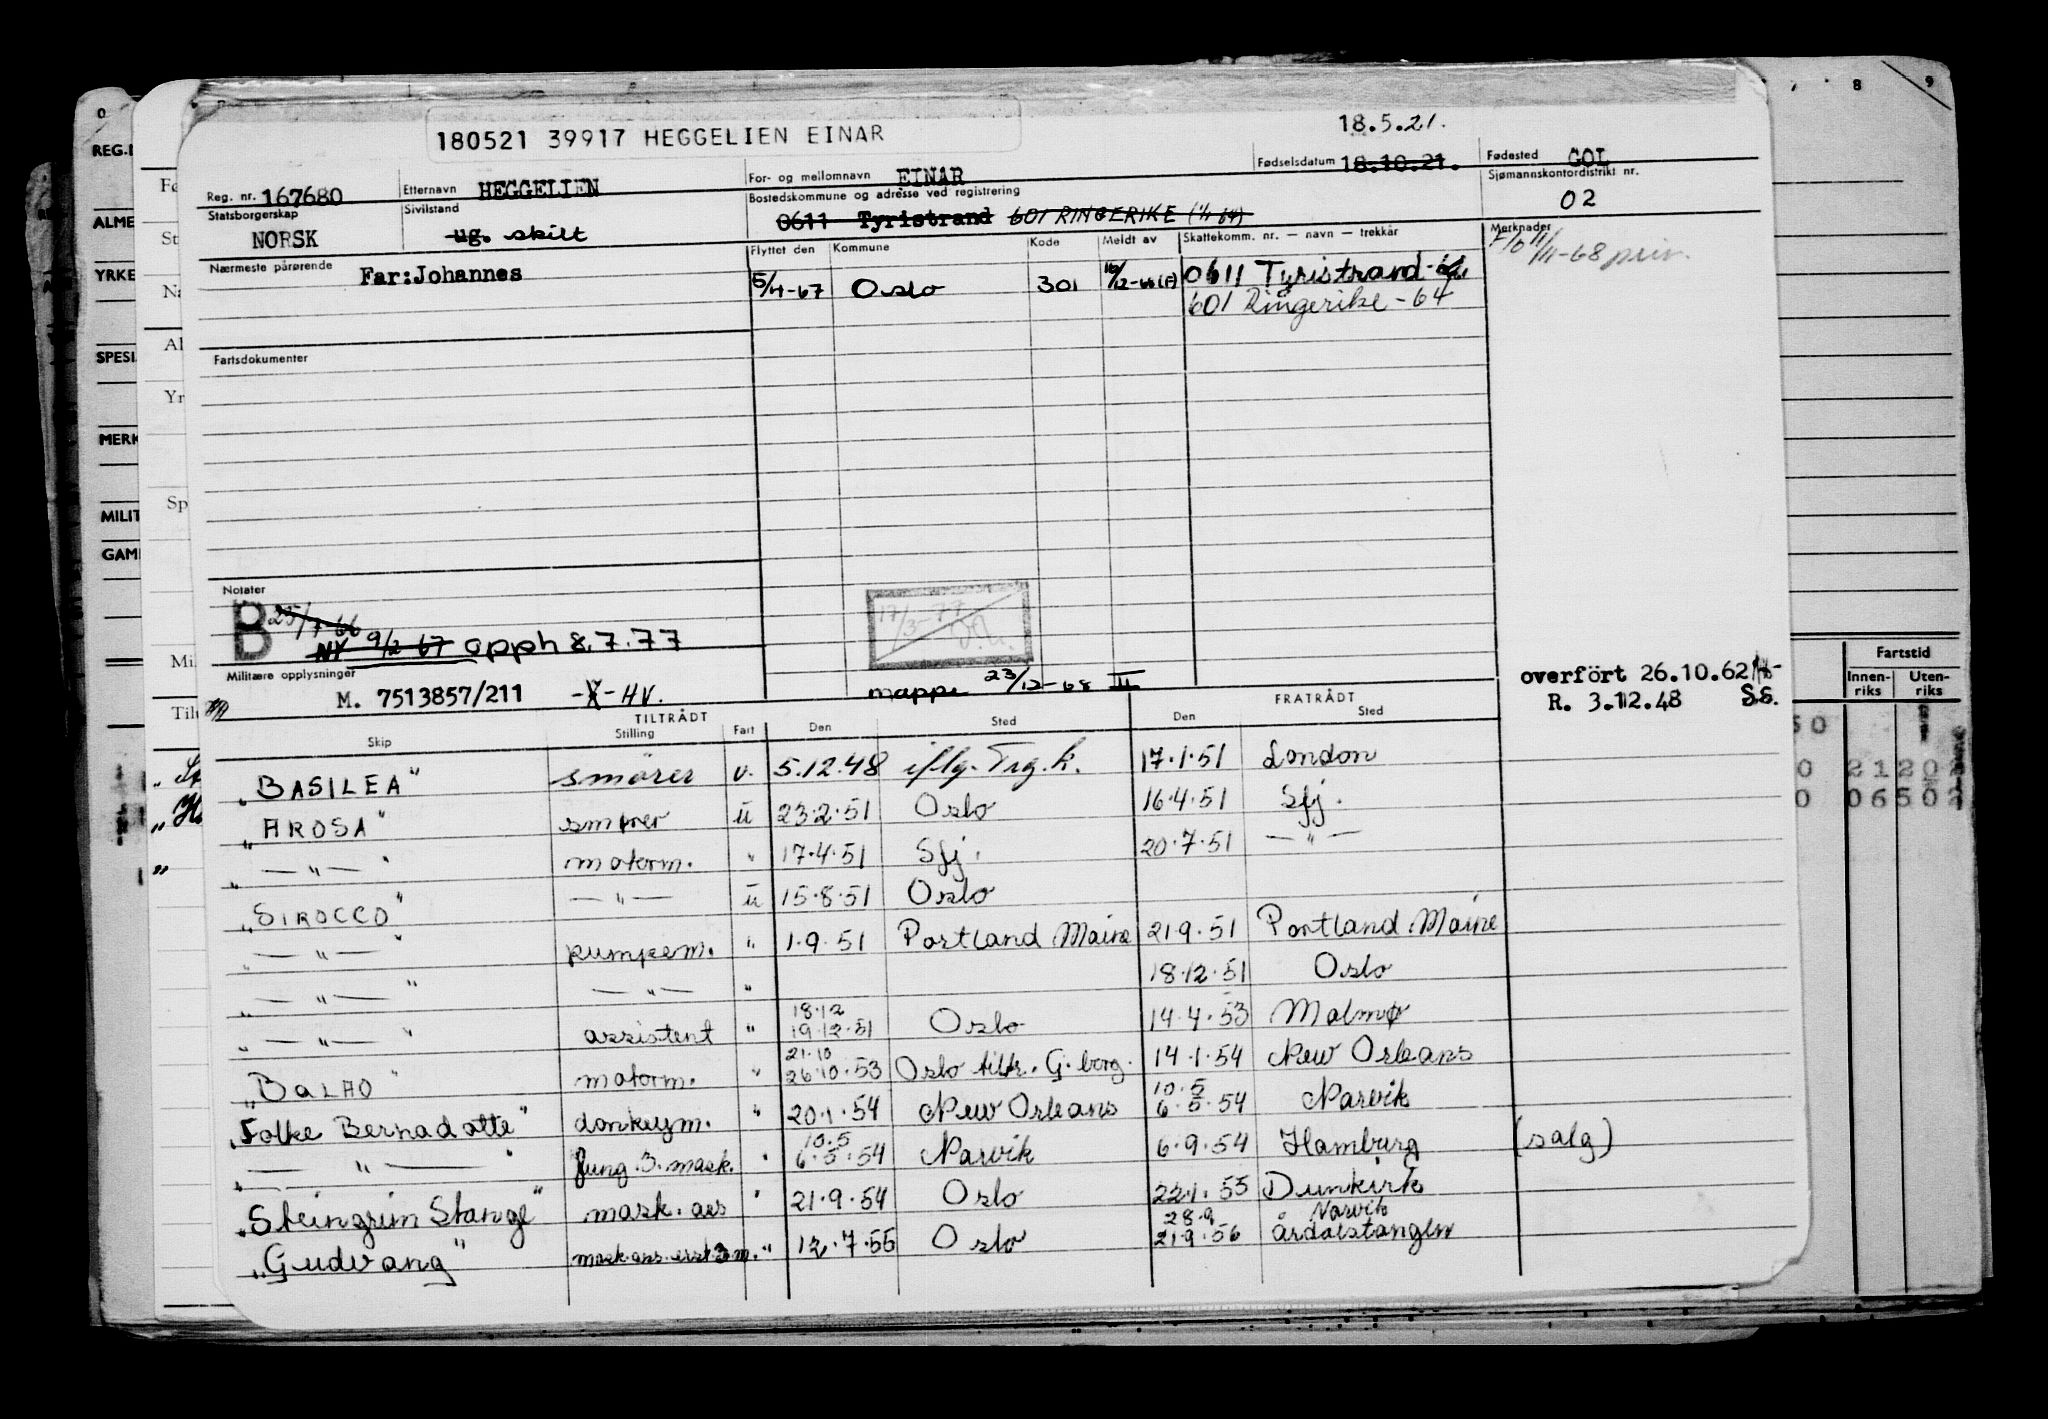 180521 39917 HEGGELIEN EINAR
18.5.21.
Reg. nr. 167680 Etternavn HEGGELIEN For- og mellomnavn EINAR Fødselsdatum 18.10.21. Fødested GOL
Statsborgerskap NORSK Sivilstand ug. skilt Bostedskommune og adresse ved registrering 0611 Tyristrand 601 RINGERIKE (1/1 64) Sjømannskontordistrikt nr. 02
Nærmeste pårørende Far:Johannes Flyttet den Kommune Kode Meldt av Skattekomm. nr. — navn — trekkår Merknader
5/4-67 Oslo 301 0611 Tyristrand
601 Ringerike - 64
Fartsdokumenter
Notater
B 25/7-66
NY 9/2 67 opph 8.7.77
17/3-77
Militære opplysninger
M. 7513857/211 -X- HV.
mappe 23/12-68 II
overført 26.10.62
R. 3.12.48 S.S.
TILTRÅDT FRATRÅDT
Skip Stilling Fart Den Sted Den Sted
"BASILEA" smører u. 5.12.48 iflg. Trg.k. 17.1.51 London
"AROSA" smører u 23.2.51 Oslo 16.4.51 Sfj.
" — " — " motorm. " 17.4.51 Sfj. 20.7.51 — " —
"SIROCCO" — " — u 15.8.51 Oslo
" — " — " pumpem. " 1.9.51 Portland Maine 21.9.51 Portland. Maine
" — " — " — " — " 18.12.51 Oslo
" — " — " assistent " 18.12 19.12.51 Oslo 14.4.53 Malmø
"BALAO" motorm. " 21.10 26.10.53 Oslo tiltr. G.borg. 14.1.54 New Orleans
"Folke Bernadotte" donkeym. " 20.1.54 New Orleans 10.5 6.5.54 Narvik
" — " — " fung. 3. mask. " 10.5 6.5.54 Narvik 6.9.54 Hamburg (salg)
"Steingrim Stange" mask. ass " 21.9.54 Oslo 22.1.55 Dunkirk
"Gudvang" mask.ass. erst 3 m. " 12.7.55 Oslo 28.9 21.9.56 Narvik Årdalstangen
REG.
ALME
YRKE
SPESI
MERK
MILIT
GAM
Fartstid
Innen-riks Uten-riks
8
9